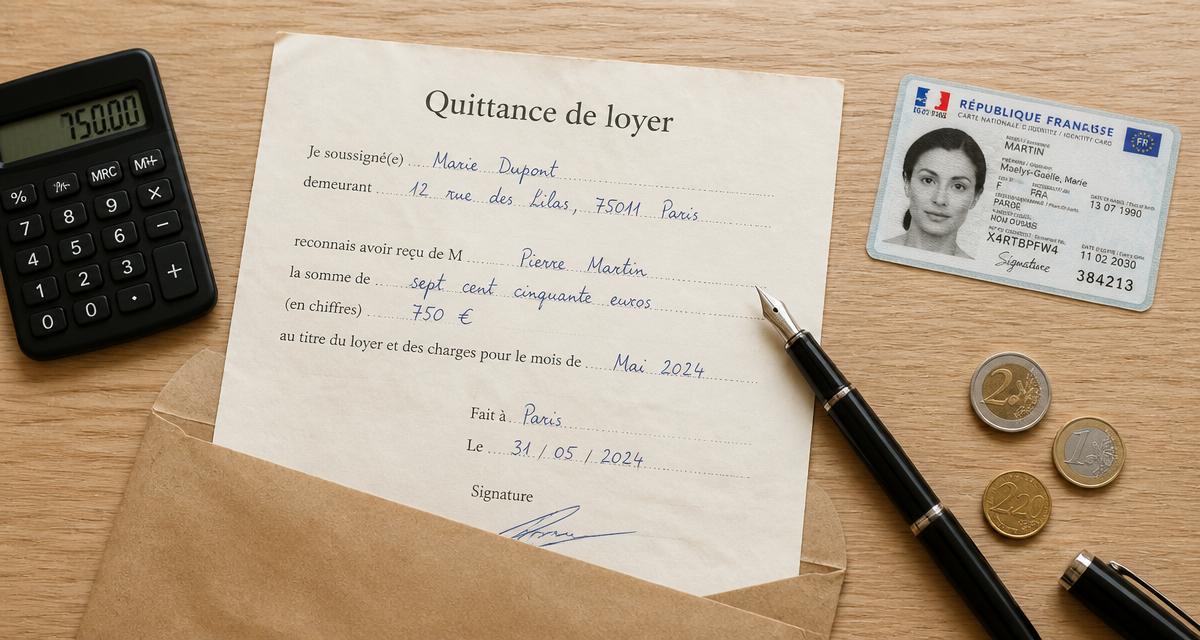 750.00
%
MRC
M+
7
8
9
×
4
5
6
−
1
2
3
+
0
0
.
Quittance de loyer
Je soussigné(e) Marie Dupont
demeurant 12 rue des Lilas, 75011 Paris
reconnais avoir reçu de M Pierre Martin
la somme de sept cent cinquante euros
(en chiffres) 750 €
au titre du loyer et des charges pour le mois de Mai 2024
Fait à Paris
Le 31 / 05 / 2024
Signature
RÉPUBLIQUE FRANÇAISE
CARTE NATIONALE D'IDENTITÉ / IDENTITY CARD
FR
MARTIN
Maelys-Gaëlle, Marie
F FRA
13 07 1990
X4RTBPFW4
11 02 2030
Signature
384213
2
1